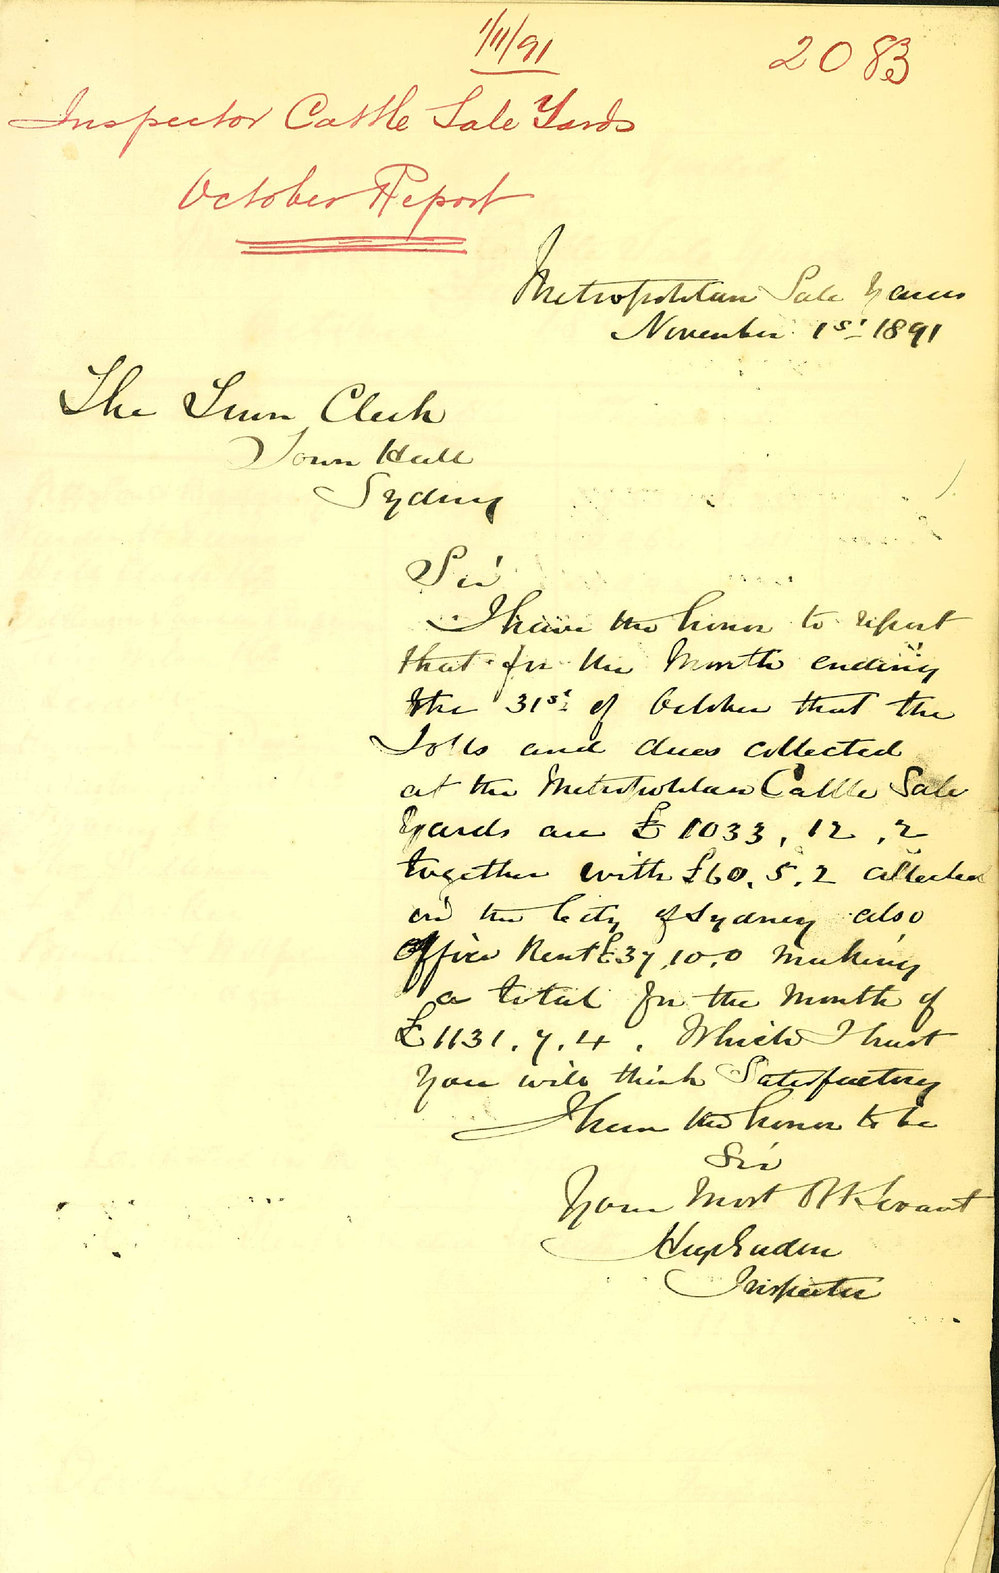 1/11/91
2083
Inspector Cattle Sale Yards
October Report
Metropolitan Sale Yards
November 1st 1891
The Town Clerk
Town Hall
Sydney
Sir
I have the honor to report
that for the Month ending
the 31st of October that the
Tolls and dues collected
at the Metropolitan Cattle Sale
Yards are £1033,12,2
together with £60.5.2 collected
in the City of Sydney also
Office Rent £37.10.0 making
a total for the month of
£1131.7.4. Which I trust
you will think Satisfactory
I have the honor to be
Sir
Your Most Obt Servant
Inspector